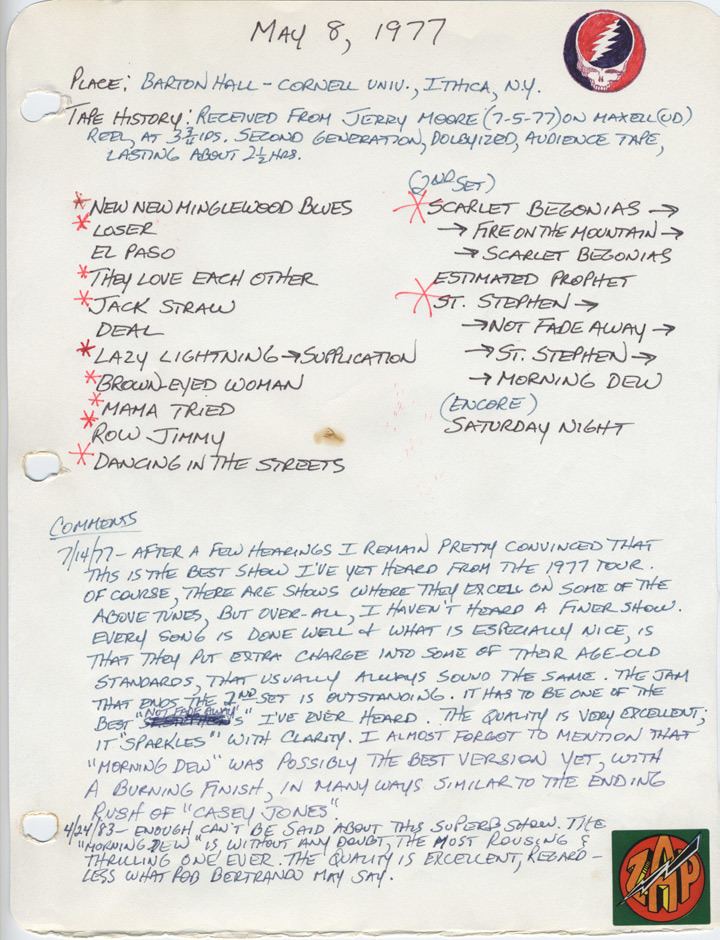 MAY 8, 1977
PLACE: BARTON HALL - CORNELL UNIV., ITHICA, N.Y.
TAPE HISTORY: RECEIVED FROM JERRY MOORE (7-5-77) ON MAXELL (UD)
REEL, AT 3 3/4 IPS. SECOND GENERATION, DOLBYIZED, AUDIENCE TAPE,
LASTING ABOUT 2 1/2 HRS.
* NEW NEW MINGLEWOOD BLUES
* LOSER
EL PASO
* THEY LOVE EACH OTHER
* JACK STRAW
DEAL
* LAZY LIGHTNING → SUPPLICATION
* BROWN-EYED WOMAN
* MAMA TRIED
* ROW JIMMY
* DANCING IN THE STREETS
(2ND SET)
* SCARLET BEGONIAS →
→ FIRE ON THE MOUNTAIN →
→ SCARLET BEGONIAS
ESTIMATED PROPHET
* ST. STEPHEN →
→ NOT FADE AWAY →
→ ST. STEPHEN →
→ MORNING DEW
(ENCORE)
SATURDAY NIGHT
COMMENTS
7/14/77 - AFTER A FEW HEARINGS I REMAIN PRETTY CONVINCED THAT
THIS IS THE BEST SHOW I'VE YET HEARD FROM THE 1977 TOUR.
OF COURSE, THERE ARE SHOWS WHERE THEY EXCELL ON SOME OF THE
ABOVE TUNES, BUT OVER-ALL, I HAVEN'T HEARD A FINER SHOW.
EVERY SONG IS DONE WELL & WHAT IS ESPECIALLY NICE, IS
THAT THEY PUT EXTRA CHARGE INTO SOME OF THEIR AGE-OLD
STANDARDS, THAT USUALLY ALWAYS SOUND THE SAME. THE JAM
THAT ENDS THE 2ND SET IS OUTSTANDING. IT HAS TO BE ONE OF THE
BEST "NOT FADE AWAY'S" I'VE EVER HEARD. THE QUALITY IS VERY EXCELLENT;
IT "SPARKLES" WITH CLARITY. I ALMOST FORGOT TO MENTION THAT
"MORNING DEW" WAS POSSIBLY THE BEST VERSION YET, WITH
A BURNING FINISH, IN MANY WAYS SIMILAR TO THE ENDING
RUSH OF "CASEY JONES".
4/24/83 - ENOUGH CAN'T BE SAID ABOUT THIS SUPERB SHOW. THE
"MORNING DEW" IS WITHOUT ANY DOUBT, THE MOST ROUSING &
THRILLING ONE EVER. THE QUALITY IS EXCELLENT, REGARD-
LESS WHAT ROB BERTRANDO MAY SAY.
ZAP